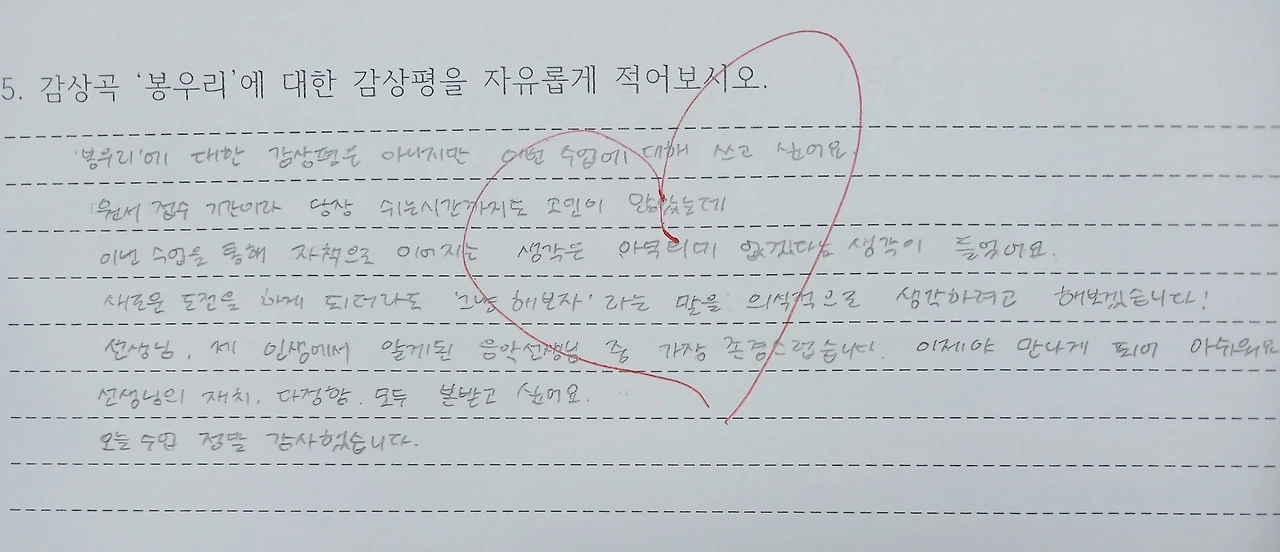 5. 감상곡 '봉우리'에 대한 감상평을 자유롭게 적어보시오.
'봉우리'에 대한 감상평은 아니지만 이번 수업에 대해 쓰고 싶어요.
원서 접수 기간이라 당장 쉬는시간까지도 고민이 많았는데
이번 수업을 통해 자책으로 이어지는 생각은 아무 의미 없겠다는 생각이 들었어요.
새로운 도전을 하게 되더라도 '그냥 해보자' 라는 말을 의식적으로 생각하려고 해보겠습니다!
선생님, 제 인생에서 알게된 음악선생님 중 가장 존경스럽습니다. 이제야 만나게 되어 아쉬워요
선생님의 재치, 다정함, 모두 본받고 싶어요.
오늘 수업 정말 감사했습니다.